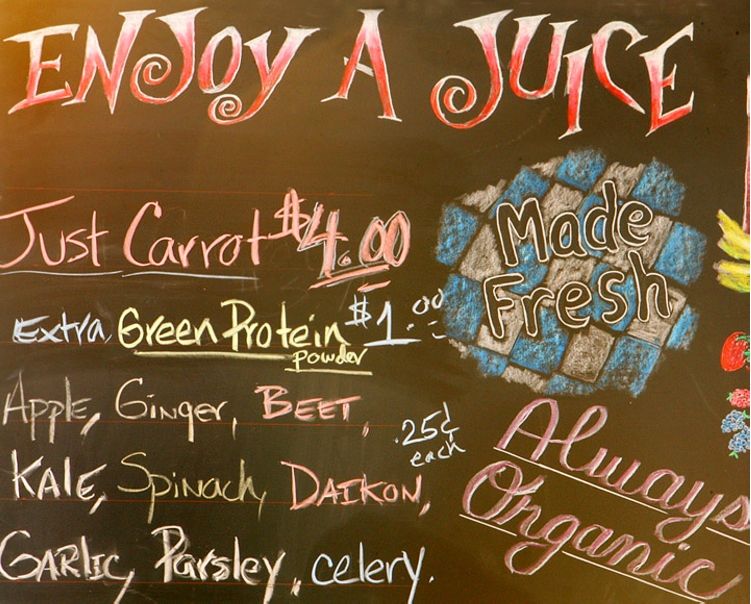 ENJOY A JUICE
Just Carrot $4.00
Made
Fresh
Extra Green Protein $1.00
powder
Apple, Ginger, BEET,
.25¢
each
KALE, Spinach, DAIKON,
GARLIC, Parsley, celery.
Always
Organic